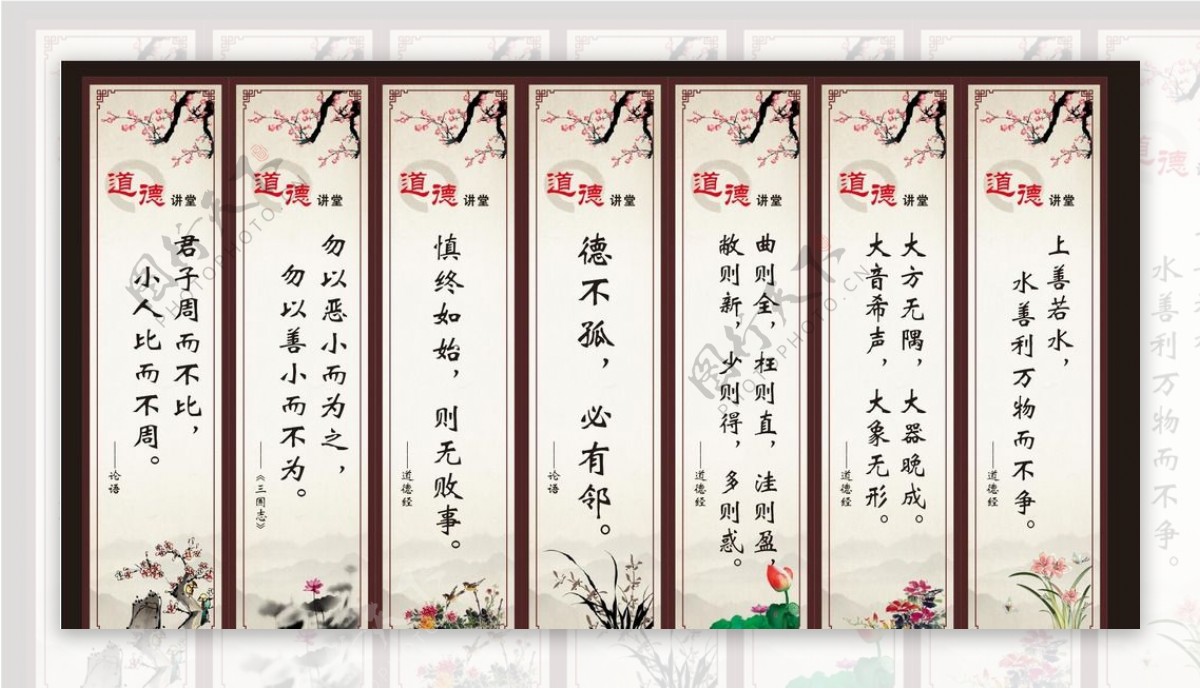 道德讲堂
君子周而不比，
小人比而不周。
——论语
道德讲堂
勿以恶小而为之，
勿以善小而不为。
——《三国志》
道德讲堂
慎终如始，则无败事。
——道德经
道德讲堂
德不孤，必有邻。
——论语
道德讲堂
曲则全，枉则直，洼则盈，
敝则新，少则得，多则惑。
——道德经
道德讲堂
大方无隅，大器晚成。
大音希声，大象无形。
——道德经
道德讲堂
上善若水，
水善利万物而不争。
——道德经
图行天下
PHOTOPHOTO.CN
图行天下
PHOTOPHOTO.CN
水善利万物而不争。